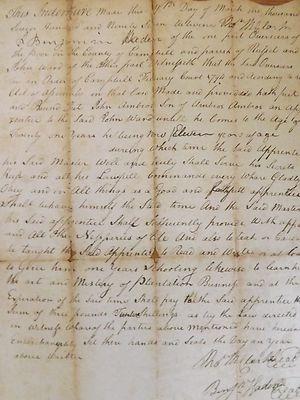 This Indenture Made this 9th Day of March one thousand
Seven Hundred and Ninety Seven between Thos
& Benjamin Haden of the one part Overseers of
the Poor in the County of Campbell and parish of Russel and
John Ward of the other part Witnesseth that the said Overseers
in Order of Campbell February Court 1797 and
Act of Assembly in that Case Made and provided hath put
and Bound Out John Ambros Son of Ambros an
to the Said John Ward untill he Comes to the Age of
Twenty one years he being now Eleven years of age
During which time the Said Apprentice
his Said Master Well and Truly Shall Serve his Secrets
Keep and all his Lawfull Commands every where Gladly
Obey and in All things as a Good and faithfull apprentice
Shall behave himself the Said time And the Said Master
his Said apprentice Shall Sufficiently provide with
and All Other Necessaries of life And also to teach or Cause
to be taught his Said Apprentice to Read and Write or at
to Give him one years Schooling likewise to learn him
the art and Mistery of Plantation Business and at the
Expiration of the Said time Shall pay to the Said apprentice the
Sum of three pounds Shillings as by the Law directed
in witness whereof the parties above Mentioned have hereunto
Set their hands and Seals the Day an year
above written
Seal
Benjn Haden
Seal